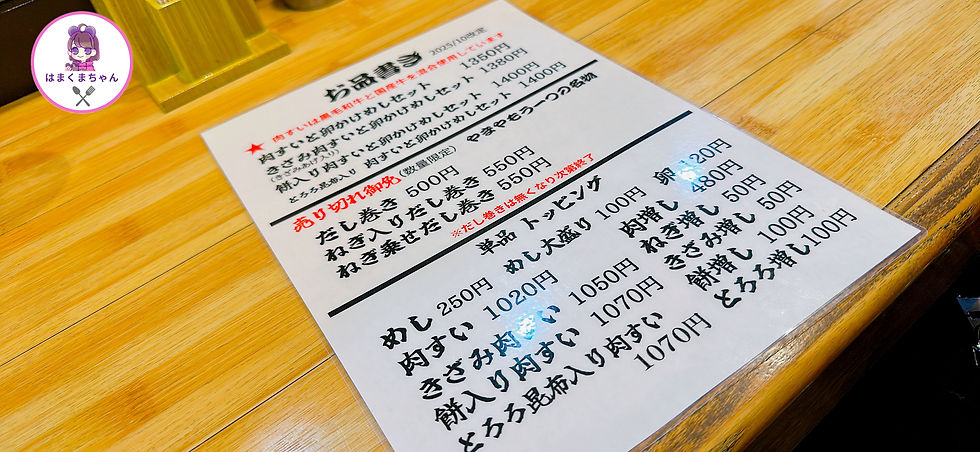 はまくまちゃん
お品書き 2025/10改定
★ 肉すいは黒毛和牛と国産牛を混合使用しています
肉すいと卵かけめしセット 1350円
きざみ肉すいと卵かけめしセット 1380円
(きざみあげ入り)
餅入り肉すいと卵かけめしセット 1400円
とろろ昆布入り 肉すいと卵かけめしセット 1400円
やまやもう一つの名物
売り切れ御免(数量限定)
だし巻き 500円
ねぎ入りだし巻き 550円
ねぎ乗せだし巻き 550円
※だし巻きは無くなり次第終了
単品 トッピング
めし 250円 めし大盛り 100円 卵 120円
肉すい 1020円 肉増し 480円
きざみ肉すい 1050円 ねぎ増し 50円
餅入り肉すい 1070円 きざみ増し 50円
とろろ昆布入り肉すい 1070円 餅増し 100円
とろろ増し 100円